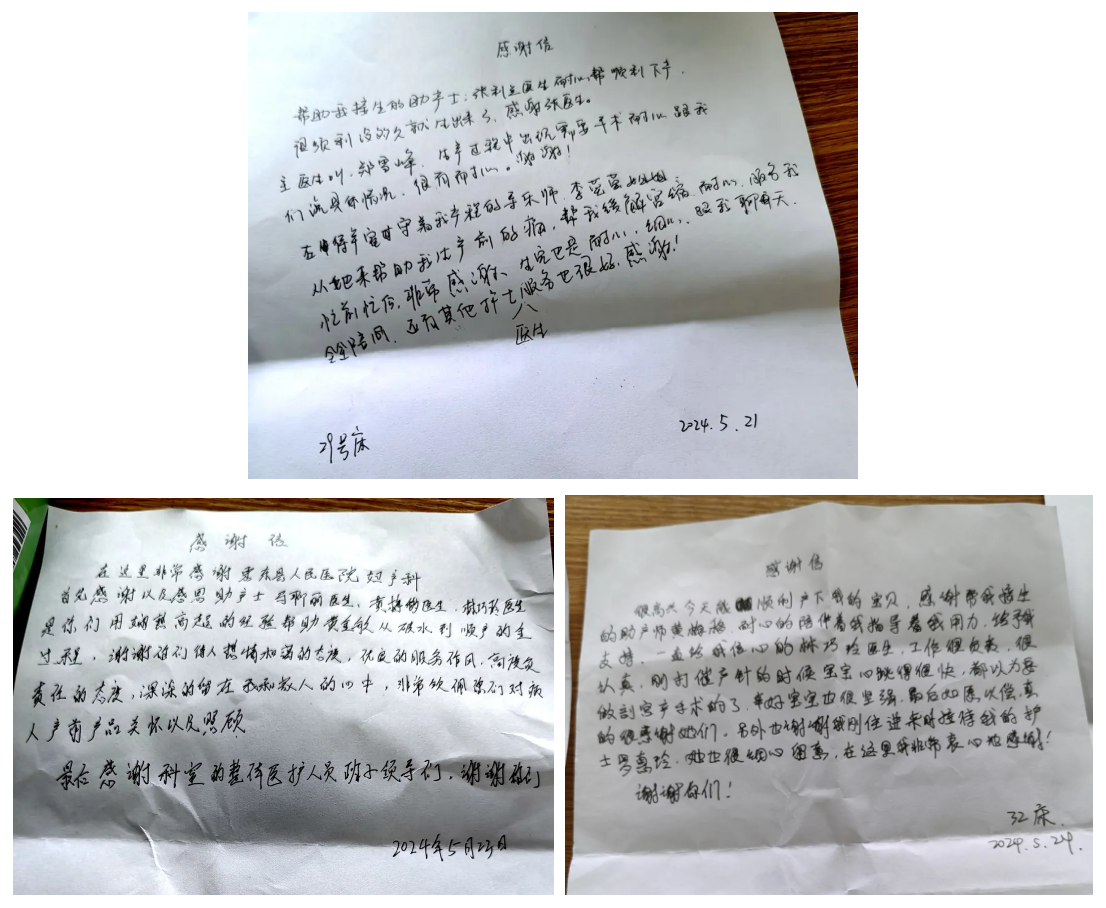 感谢信
帮助我接生的助产士：张利主医生耐心帮顺利下产．
很顺利没多久就生出来了，感谢张医生。
主医生叫，郑雪峰．生产过程中出现需要手术耐心跟我
们沟具体情况，很有耐心。谢谢！
在待产室时守着我产程的导乐师．李莹莹姐姐
从起来帮助我生产前的痛，帮我缓解宫缩，耐心．服务我
忙前忙后，非常感谢、生完也是耐心、细心、照我聊聊天．
全全陪同．还有其他护士服务也很好．感谢！
医生
29号床
2024.5.21
感谢信
在这里非常感谢惠东县人民医院妇产科
首先感谢以及感恩助产士医生，黄医生，林巧玲医生
是你们用娴熟高超的经验帮助黄从破水到顺产的全
过程，谢谢你们待人热情和蔼的态度，优良的服务作风，高度负
责任的态度，深深的留在我和家人的心中，非常钦佩你们对病
人产前产品关怀以及照顾
最后感谢科室的整体医护人员班子领导们，谢谢你们
2024年5月23日
感谢信
很高兴今天能顺利产下我的宝贝，感谢帮我接生
的助产师黄梅，耐心的陪伴着我指导着我用力．给予我
支持．一直给我信心的林巧玲医生，工作很负责，很
认真．刚打催产针的时候宝宝心跳得很快，都以为要
做剖宫产手术的了．幸好宝宝也很坚强．最后如愿以偿．真
的很感谢她们．另外也谢谢我刚住进来时接待我的护
士罗惠玲．她也很细心 ，在这里我非常衷心地感谢！
谢谢你们！
32床．
2024.5.24．